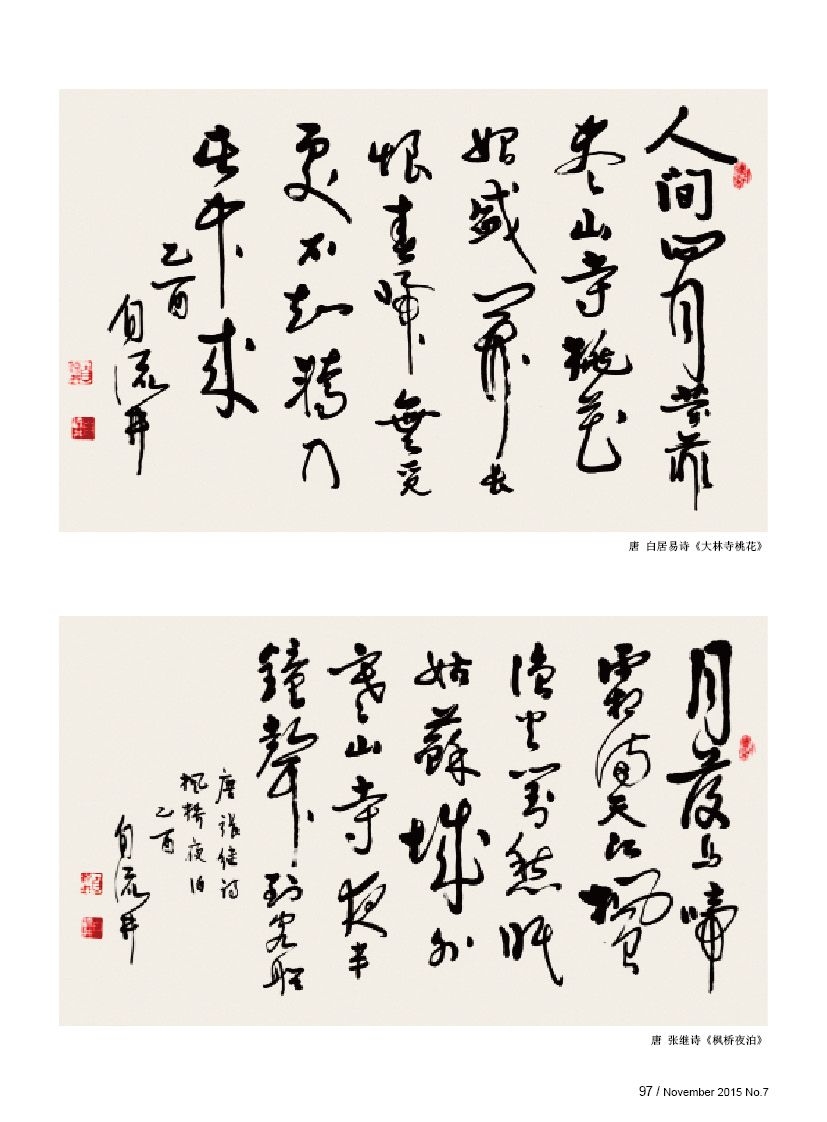 人間四月芳菲
尽山寺桃花
始盛開長
恨春歸無覓
處不知轉入
此中来
乙酉
自流井
唐 白居易诗《大林寺桃花》
月落烏啼
霜满天江楓
漁火對愁眠
姑蘇城外
寒山寺夜半
鐘聲到客船
唐張继诗
枫桥夜泊
乙酉
自流井
唐 张继诗《枫桥夜泊》
97 / November 2015 No.7